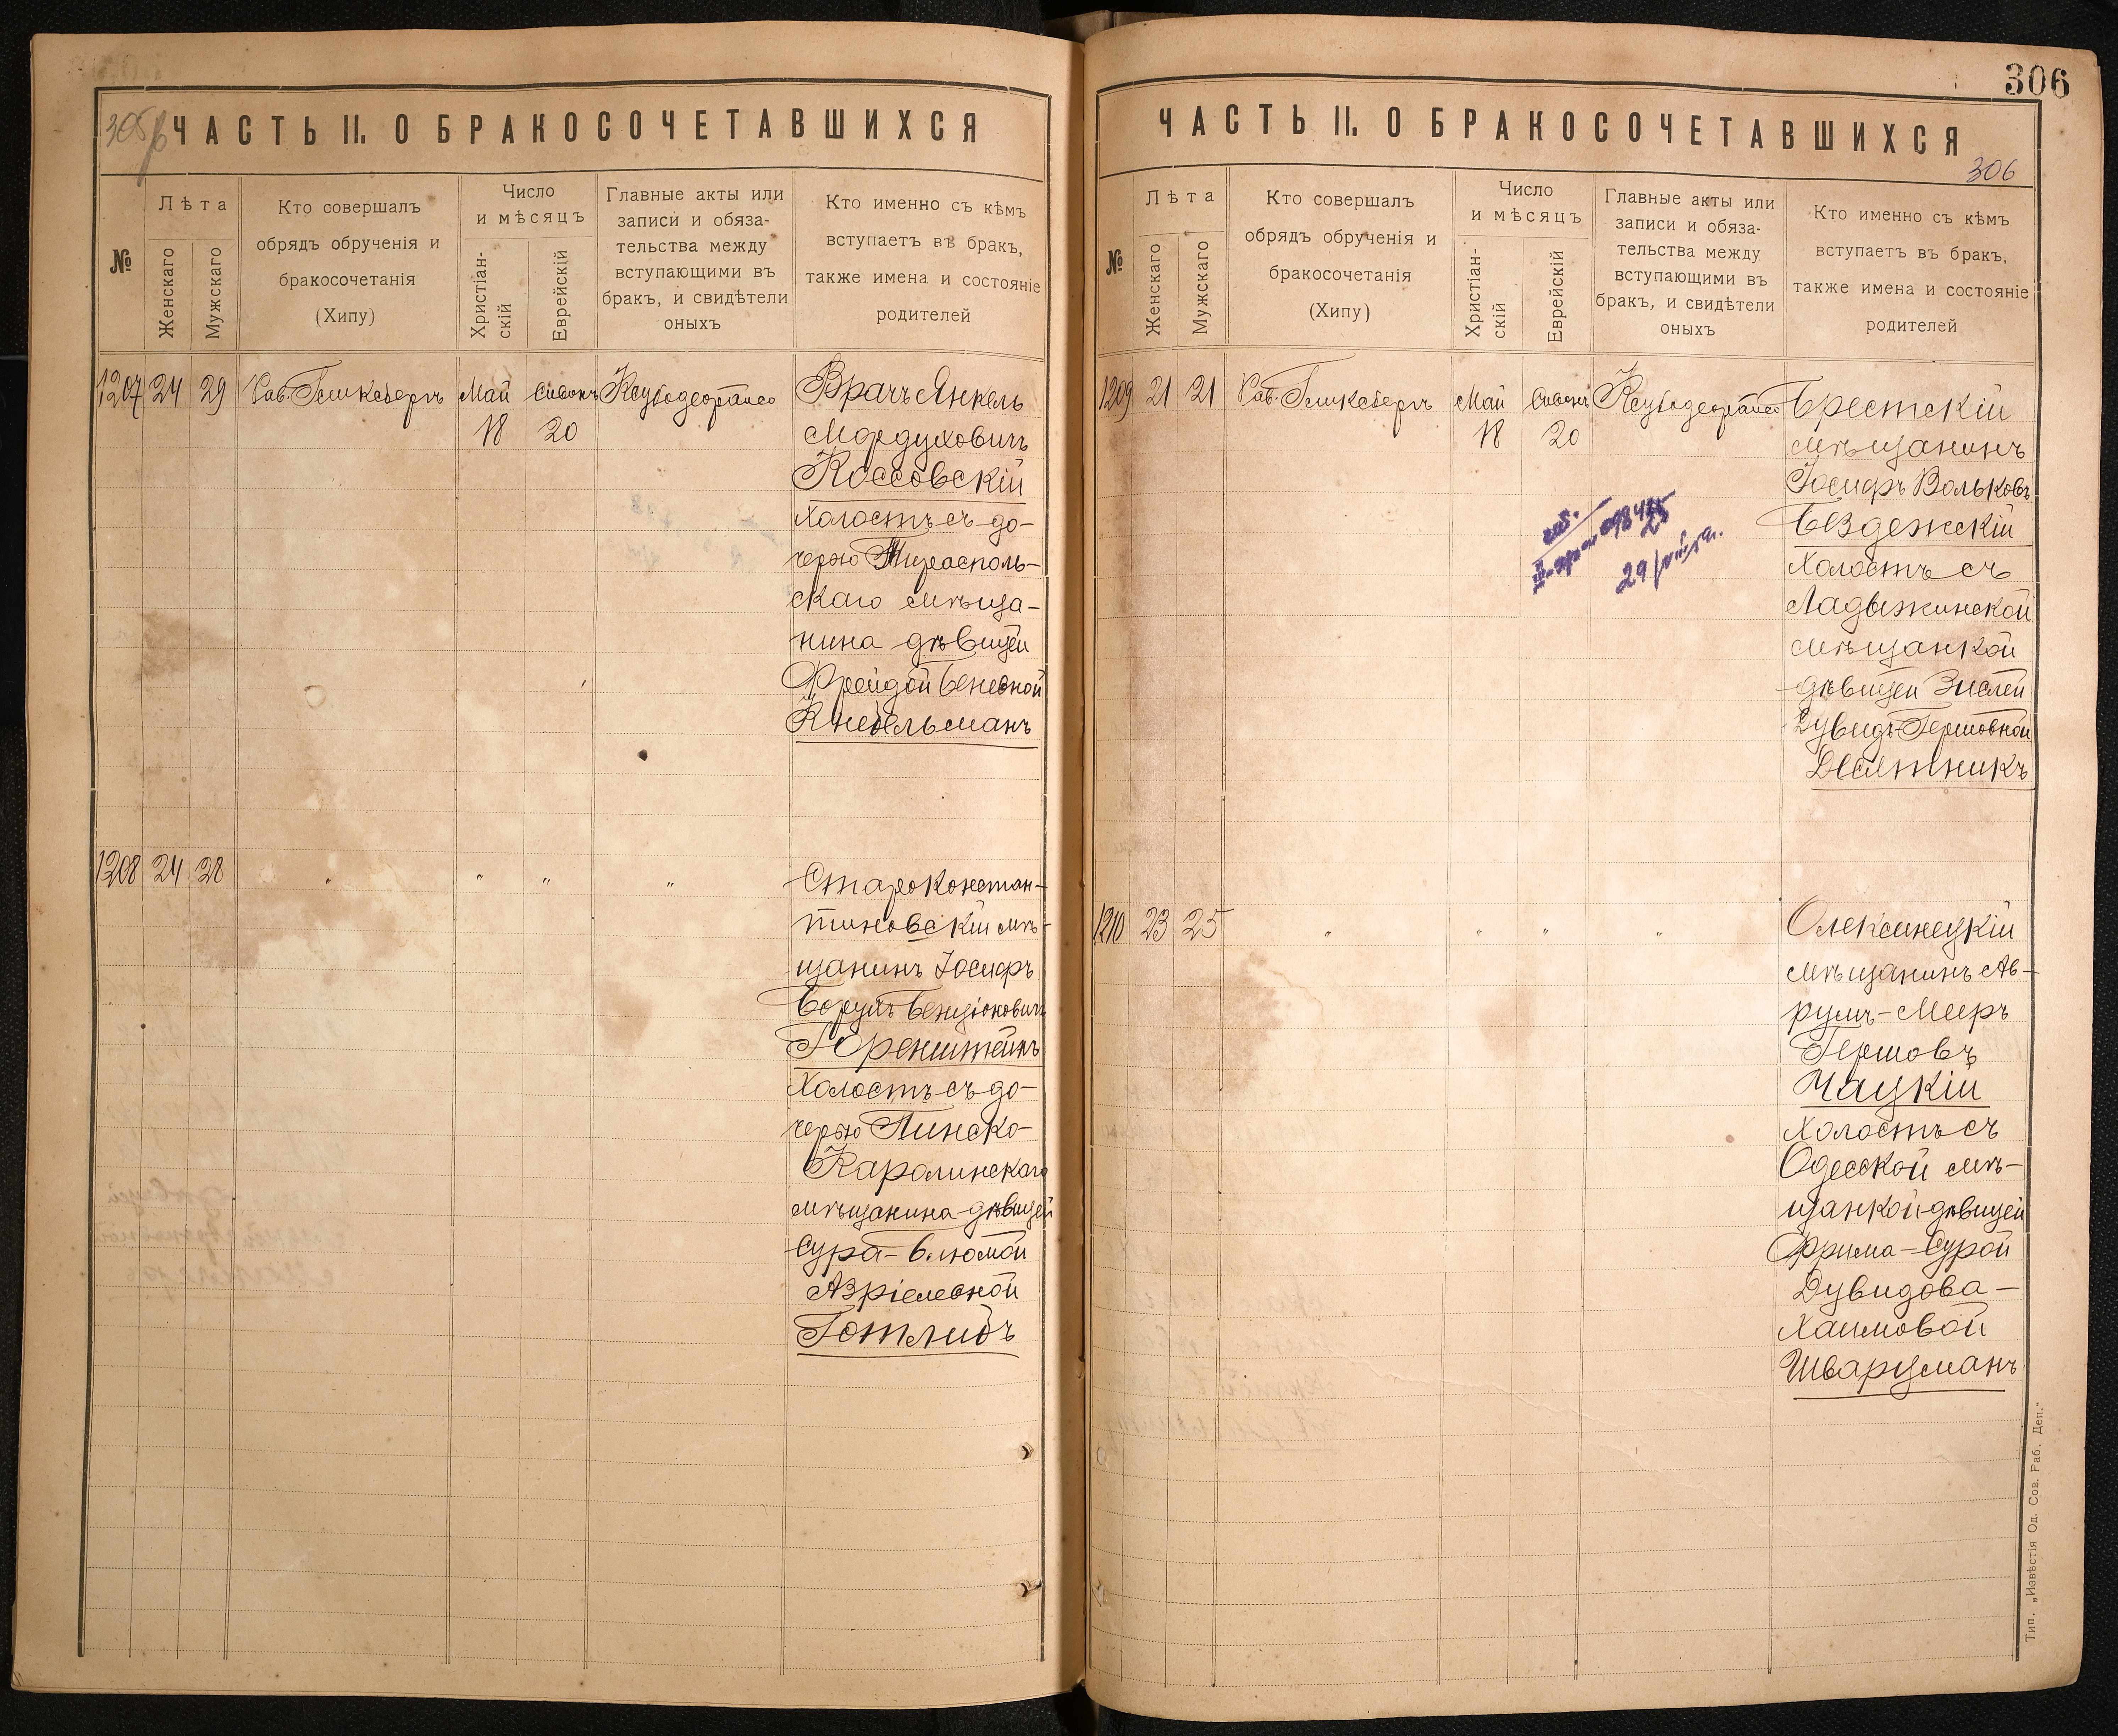 305об
ЧАСТЬ II. О БРАКОСОЧЕТАВШИХСЯ
№
Лѣта
Женскаго
Мужскаго
Кто совершалъ
обрядъ обрученія и
бракосочетанія
(Хипу)
Число
и мѣсяцъ
Христіан-
скій
Еврейскій
Главные акты или
записи и обяза-
тельства между
вступающими въ
бракъ, и свидѣтели
оныхъ
Кто именно съ кѣмъ
вступаетъ въ бракъ,
также имена и состояніе
родителей
1207 24 29 Рав. Гликсбергъ Май Сивонъ
18 20
Врачъ Янкель
Мордуховичъ
Коссовскій
холостъ съ до-
черью Тирасполь-
скаго мѣща-
нина дѣвицей
Фрейдой Беневной
Кнебельманъ
1208 24 28 " " " "
Староконстан-
тиновскій мѣ-
щанинъ Іосифъ
Борухъ Бенціоновичъ
Горенштейнъ
Холостъ съ до-
черью Пинско-
Каролинскаго
мѣщанина дѣвицей
Сура-Блюмой
Азріелевной
Готлибъ
306
ЧАСТЬ II. О БРАКОСОЧЕТАВШИХСЯ
306
№
Лѣта
Женскаго
Мужскаго
Кто совершалъ
обрядъ обрученія и
бракосочетанія
(Хипу)
Число
и мѣсяцъ
Христіан-
скій
Еврейскій
Главные акты или
записи и обяза-
тельства между
вступающими въ
бракъ, и свидѣтели
оныхъ
Кто именно съ кѣмъ
вступаетъ въ бракъ,
также имена и состояніе
родителей
1209 21 21 Рав. Гликсбергъ Май Сивонъ
18 20
Брестскій
мѣщанинъ
Іосифъ Вольковъ
Бездежскій
Холостъ съ
Ладыжинской
мѣщанкой
дѣвицей Зислей
Дувидъ-Гершовной
Десятникъ
1210 23 25 " " " "
Олексинецкій
мѣщанинъ Ав-
румъ-Мееръ
Гершовъ
Чацкій
Холостъ съ
Одесской мѣ-
щанкой дѣвицей
Фрима-Сурой
Дувидова-
Хаимовой
Шварцманъ
Тип. „Извѣстія Од. Сов. Раб. Деп."